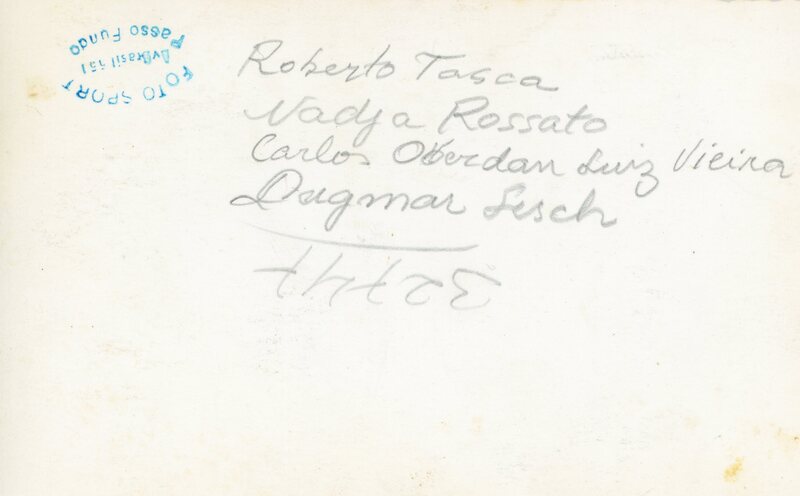 FOTO SPORT
Av. Brasil 551
Passo Fundo
Roberto Tasca
Nadja Rossato
Carlos Oberdan Luiz Vieira
Dagmar Lesch
32747